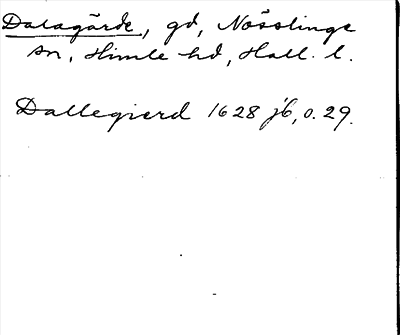 Dalagärde, gd, Nösslinge
sn, Himle hd, Hall. l.
Dallegierd 1628 jb, o. 29.